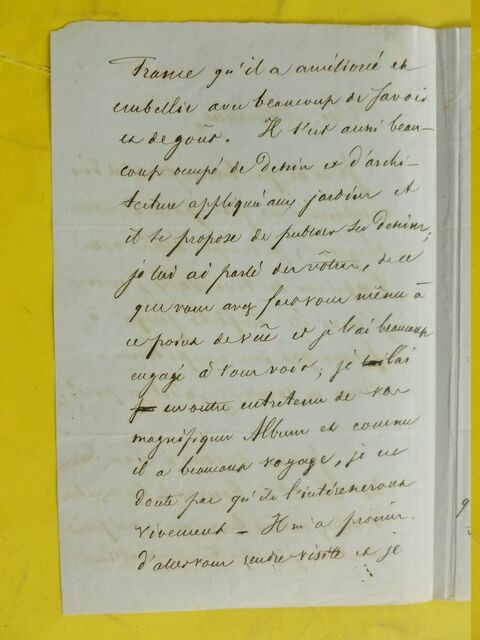 France qu'il a amélioré et
embellie avec beaucoup de savoir
et de goût. Il s'est aussi beau-
coup occupé de dessin et d'archi-
tecture appliqué aux jardins et
il se propose de publier ses dessins;
je lui ai parlé des vôtres, de ce
que vous avez fait vous même à
ce point de vue et je l'ai beaucoup
engagé à vous voir; je l'ai
en outre entretenu de vos
magnifiques Albums et comme
il a beaucoup voyagé, je ne
doute pas qu'ils l'intéresseront
vivement — Il m'a promis
d'aller vous rendre visite et je
9